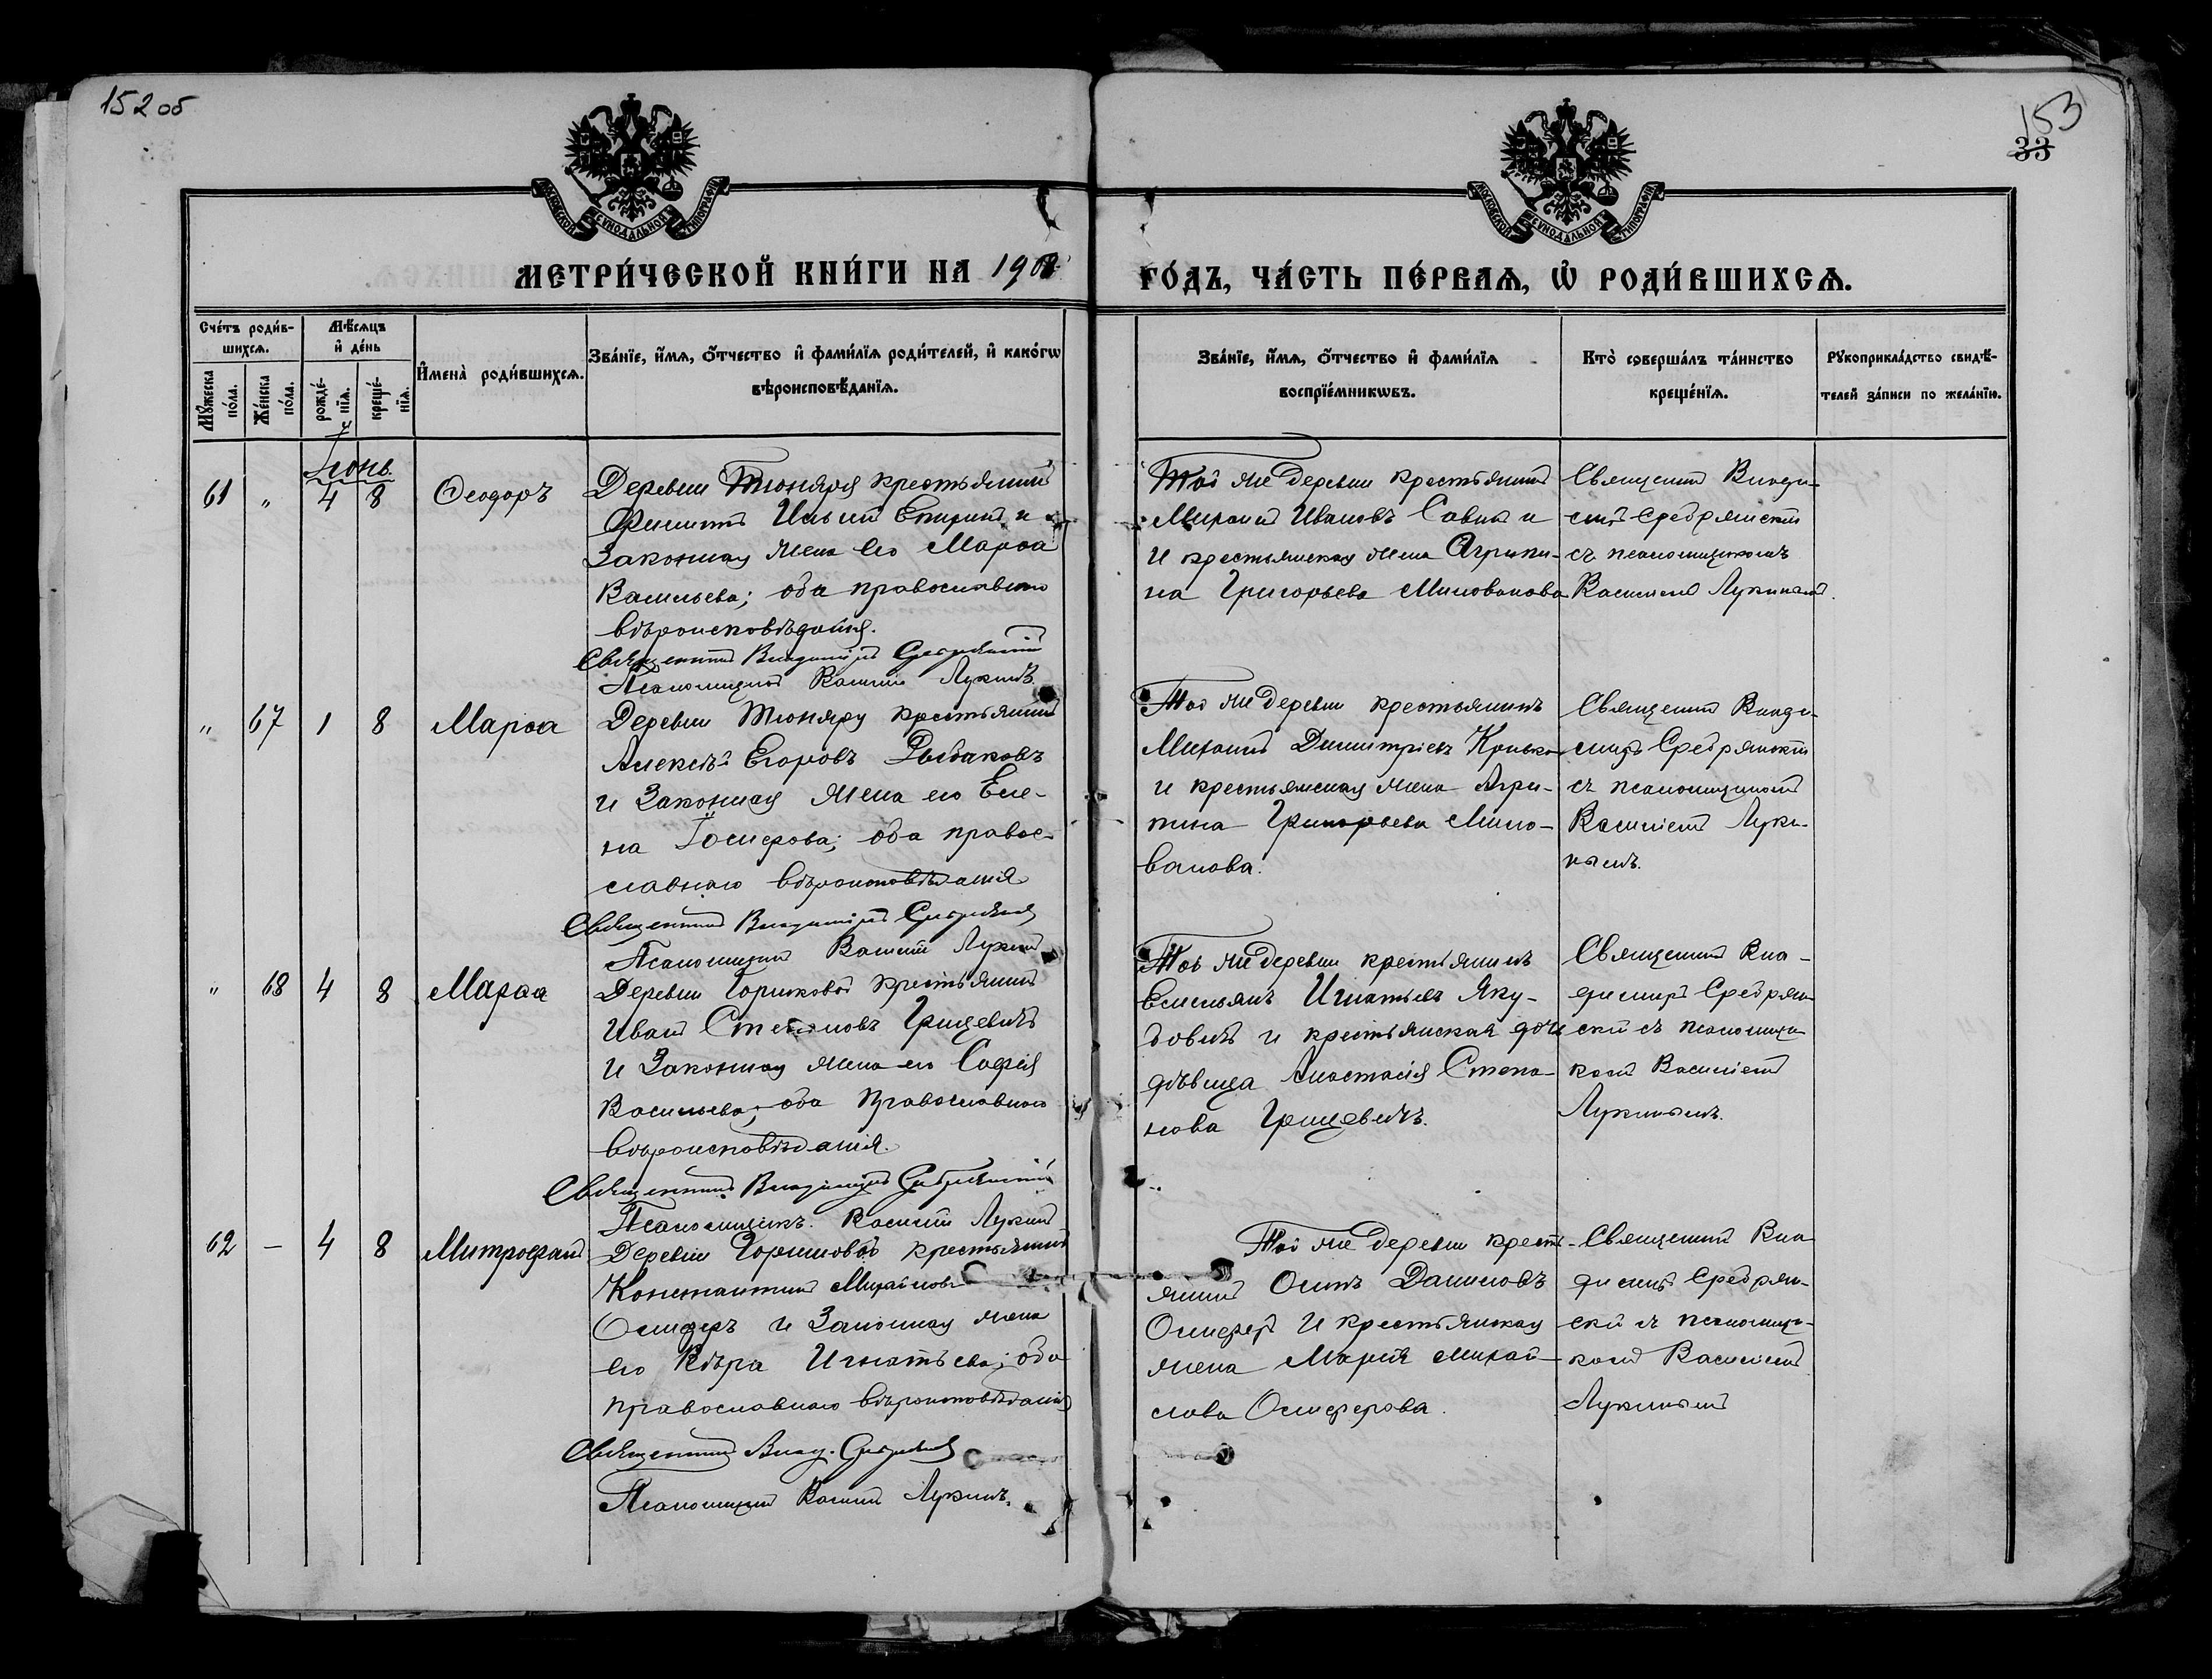 152 об
153
33
МОСКОВСКОЙ СѴНОДАЛЬНОЙ ТИПОГРАФІИ
МОСКОВСКОЙ СѴНОДАЛЬНОЙ ТИПОГРАФІИ
МЕТРИ́ЧЕСКОЙ КНИ́ГИ НА 1908
ГО́ДЪ, ЧА́СТЬ ПЕ́РВАѦ, Ѡ҆ РОДИ́ВШИХСѦ.
Сче́тъ роди́в-
шихсѧ.
Мѣ́сѧцъ
и҆ де́нь
Мꙋ́жеска
по́ла.
Же́нска
по́ла.
рожде́-
нїѧ.
креще́-
нїѧ.
И҆мена̀ роди́вшихсѧ.
Зва́нїе, и҆́мѧ, ѻ҆́тчество и҆ фами́лїѧ роди́телей, и҆ како́гѡ
вѣроисповѣ́данїѧ.
Зва́нїе, и҆́мѧ, ѻ҆́тчество и҆ фами́лїѧ
воспрїе́мникѡвъ.
Кто̀ соверша́лъ та́инство
креще́нїѧ.
Рꙋкоприкла́дство свидѣ́-
телей за́писи по жела́нїю.
Іюнь.
61 " 4 8 Ѳеодоръ
Деревни Тюняря крестьянинъ
Филиппъ Ильинъ и
Законная жена его Марѳа
Васильева; оба православнаго
вѣроисповѣданія.
Священникъ Владиміръ Средрянскій
Псаломщикъ Василій Лукинъ.
Той же деревни крестьянинъ
Михаилъ Ивановъ и
и крестьянская жена Агрипи-
на Григорьева Милованова
Священникъ Влади-
миръ Средрянскій
съ псаломщикомъ
Василіемъ Лукинымъ.
" 67 1 8 Марѳа
Деревни Тюняру крестьянинъ
Алексѣй Егоровъ Рыбаковъ
и Законная жена его Еле-
на Іосифова; оба правос-
славнаго вѣроисповѣданія
Священникъ Владиміръ Средрянскій
Псаломщикъ Василій Лукинъ
Той же деревни крестьянинъ
Михаилъ Димитріевъ
и крестьянская жена Агри-
пина Григорьева Мило-
ванова.
Священникъ Влади-
миръ Средрянскій
съ псаломщикомъ
Василіемъ Луки-
нымъ.
" 68 4 8 Марѳа
Деревни Горшковой крестьянинъ
Иванъ Степановъ Грицевичъ
и Законная жена его Софія
Васильева; оба Православнаго
вѣроисповѣданія.
Священникъ Владиміръ Средрянскій
Псаломщикъ. Василій Лукинъ
Той же деревни крестьянинъ
Емельянъ Игнатьевъ Яку-
бовичъ и крестьянская дочь
дѣвица Анастасія Степа-
нова Грицевичъ.
Священникъ Вла-
димиръ Средрян-
скій съ псаломщи-
комъ Василіемъ
Лукинымъ.
62 — 4 8 Митрофанъ
Деревни Горшковой крестьянинъ
Константинъ Михайловъ
Осиферъ и Законная жена
его Вѣра Игнатьева; оба
православнаго вѣроисповѣданія
Священникъ Влад. Средрянскій
Псаломщикъ Василій Лукинъ.
Той же деревни кресть-
янинъ Осипъ Даниловъ
Осиферъ и крестьянская
жена Марія Михай-
лова Осиферова.
Священникъ Вла-
димиръ Средрян-
скій съ псаломщи-
комъ Василіемъ
Лукинымъ